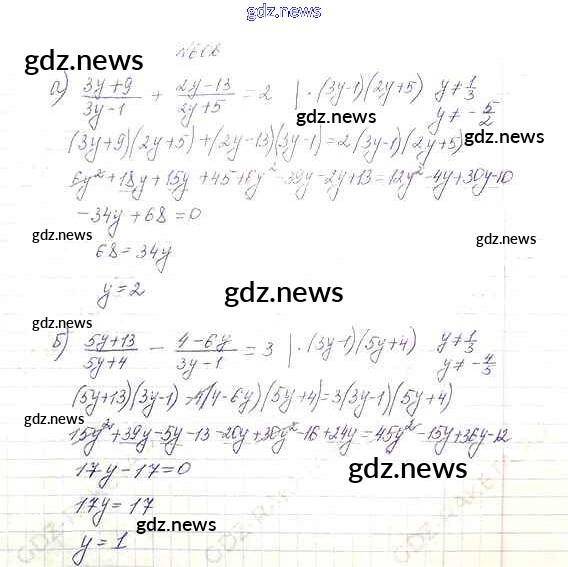 gdz.news
gdz.news
а) (3y+9)/(3y-1) + (2y-13)/(2y+5) = 2 | · (3y-1)(2y+5) y ≠ 1/3
gdz.news
y ≠ -5/2
(3y+9)(2y+5)+(2y-13)(3y-1)=2(3y-1)(2y+5)
gdz.news
gdz.news
6y²+18y+15y+45+6y²-39y-2y+13=12y²-4y+30y-10
-34y+68=0
gdz.news
gdz.news
68=34y
y=2
gdz.news
gdz.news
б) (5y+13)/(5y+4) - (4-6y)/(3y-1) = 3 | · (3y-1)(5y+4) y ≠ 1/3
y ≠ -4/5
(5y+13)(3y-1)-(4-6y)(5y+4)=3(3y-1)(5y+4)
gdz.news
15y²+39y-5y-13-20y+30y²-16+24y=45y²-15y+36y-12
17y-17=0
gdz.news
17y=17
gdz.news
y=1